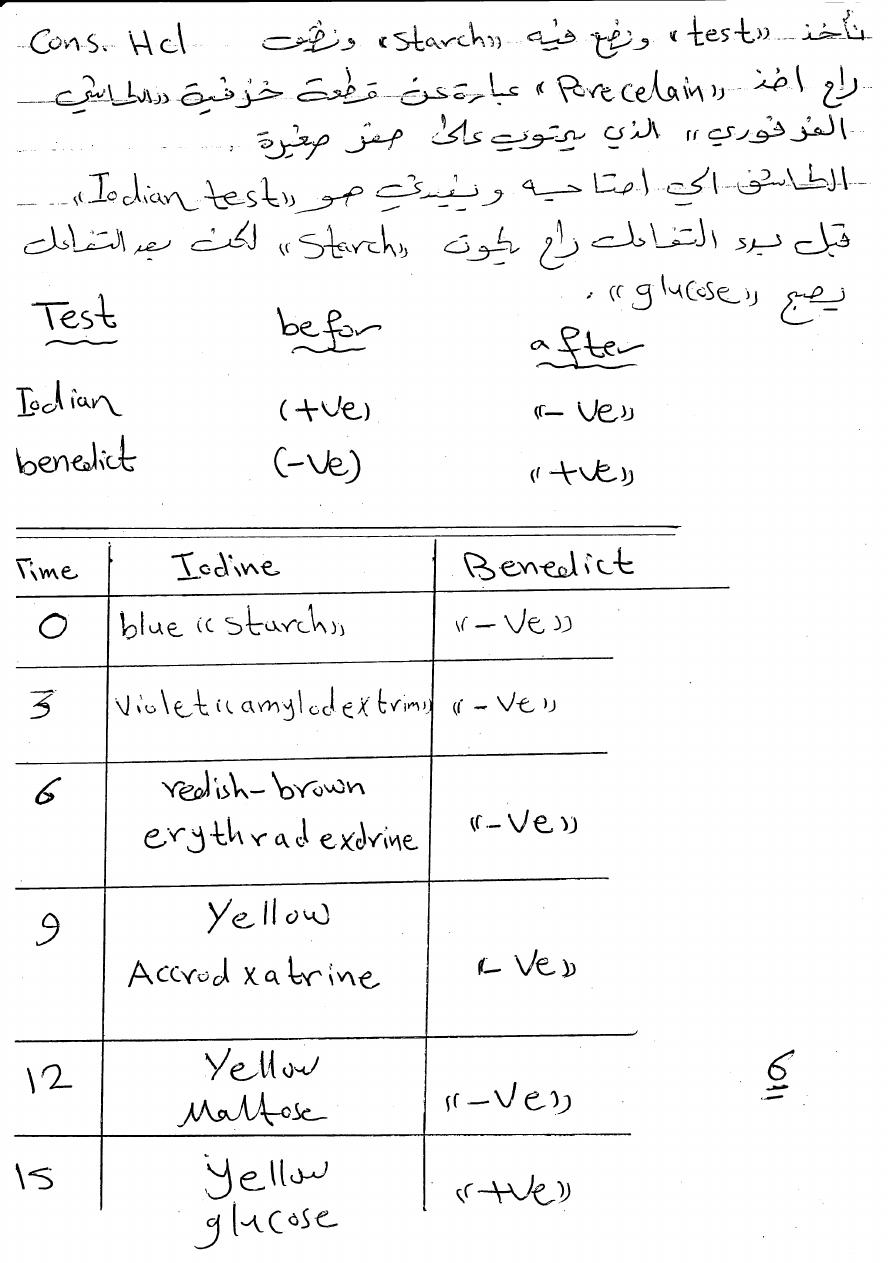 نأخذ «test» ونضع فيه «starch» ونضف Cons. Hcl
راح اخذ «Porecelain» عبارة عن قطعة خزفية «الطاشي
الفرفوري» الذي يحتوي على حفر صغيرة .
الي احتاجيه ويفيدني هو «Iodian test»
قبل بدء التفاعل راح يكون «Starch» لكن بعد التفاعل
يصبح «glucose» .
Test befor after
Iodian (+ve) «- ve»
benedict (-ve) «+ve»
Time Iodine Benedict
0 blue «starch» «-ve»
3 violet «amylodextrim» «-ve»
6 redish-brown
erythradexdrine «-ve»
9 Yellow
Accrodxatrine - ve»
12 Yellow
Maltose «-ve»
6
15 Yellow
glucose «+ve»